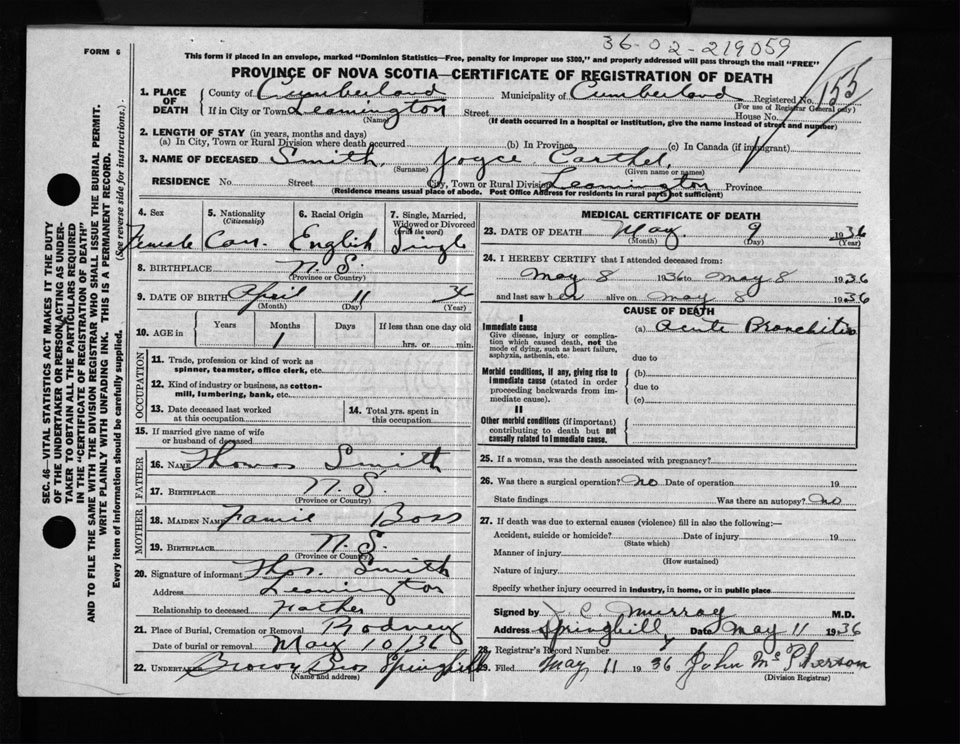 36-02-219059
FORM 6
This form if placed in an envelope, marked "Dominion Statistics—Free, penalty for improper use $300," and properly addressed will pass through the mail "FREE"
PROVINCE OF NOVA SCOTIA—CERTIFICATE OF REGISTRATION OF DEATH
1. PLACE OF DEATH County of Cumberland Municipality of Cumberland Registered No. 155
(For use of Registrar General only)
If in City or Town Leamington Street House No.
(Name) (If death occurred in a hospital or institution, give the name instead of street and number)
2. LENGTH OF STAY (in years, months and days)
(a) In City, Town or Rural Division where death occurred (b) In Province (c) In Canada (if immigrant)
3. NAME OF DECEASED Smith, Joyce
(Surname) (Given name or names)
RESIDENCE No. Street City, Town or Rural Division Leamington Province
(Residence means usual place of abode. Post Office Address for residents in rural parts not sufficient)
4. Sex 5. Nationality (Citizenship) 6. Racial Origin 7. Single, Married, Widowed or Divorced (write the word)
Female Can. English Single
8. BIRTHPLACE N. S.
(Province or Country)
9. DATE OF BIRTH April 11
(Month) (Day) (Year)
10. AGE in Years Months Days If less than one day old
1 hrs. or min.
OCCUPATION
11. Trade, profession or kind of work as spinner, teamster, office clerk, etc.
12. Kind of industry or business, as cotton-mill, lumbering, bank, etc.
13. Date deceased last worked at this occupation
14. Total yrs. spent in this occupation
15. If married give name of wife or husband of deceased
FATHER
16. NAME Thomas Smith
17. BIRTHPLACE N. S.
(Province or Country)
MOTHER
18. MAIDEN NAME Boss
19. BIRTHPLACE N. S.
(Province or Country)
20. Signature of informant Thos. Smith
Address Leamington
Relationship to deceased Father
21. Place of Burial, Cremation or Removal Rodney
Date of burial or removal May 10/36
22. UNDERTAKER Brown Bros Springhill
(Name and address)
MEDICAL CERTIFICATE OF DEATH
23. DATE OF DEATH May 9 1936
(Month) (Day) (Year)
24. I HEREBY CERTIFY that I attended deceased from:
May 8 1936 to May 8 1936
and last saw her alive on May 8 1936
CAUSE OF DEATH
I
Immediate cause (a) Acute Bronchitis
Give disease, injury or complication which caused death, not the mode of dying, such as heart failure, asphyxia, asthenia, etc.
due to
Morbid conditions, if any, giving rise to immediate cause (stated in order proceeding backwards from immediate cause).
(b)
due to
(c)
II
Other morbid conditions (if important) contributing to death but not causally related to immediate cause.
25. If a woman, was the death associated with pregnancy?
26. Was there a surgical operation? No Date of operation 19
State findings Was there an autopsy? No
27. If death was due to external causes (violence) fill in also the following:—
Accident, suicide or homicide? Date of injury 19
(State which)
Manner of injury
(How sustained)
Nature of injury
Specify whether injury occurred in industry, in home, or in public place
Signed by C Murray M.D.
Address Springhill Date May 11 1936
28. Registrar's Record Number
29. Filed May 11 1936 John McPherson
(Division Registrar)
SEC. 46—VITAL STATISTICS ACT MAKES IT THE DUTY
OF THE UNDERTAKER OR PERSON ACTING AS UNDER-
TAKER TO OBTAIN ALL THE PARTICULARS REQUIRED
IN THE "CERTIFICATE OF REGISTRATION OF DEATH"
AND TO FILE THE SAME WITH THE DIVISION REGISTRAR WHO SHALL ISSUE THE BURIAL PERMIT.
WRITE PLAINLY WITH UNFADING INK. THIS IS A PERMANENT RECORD.
Every item of information should be carefully supplied. (See reverse side for instructions.)